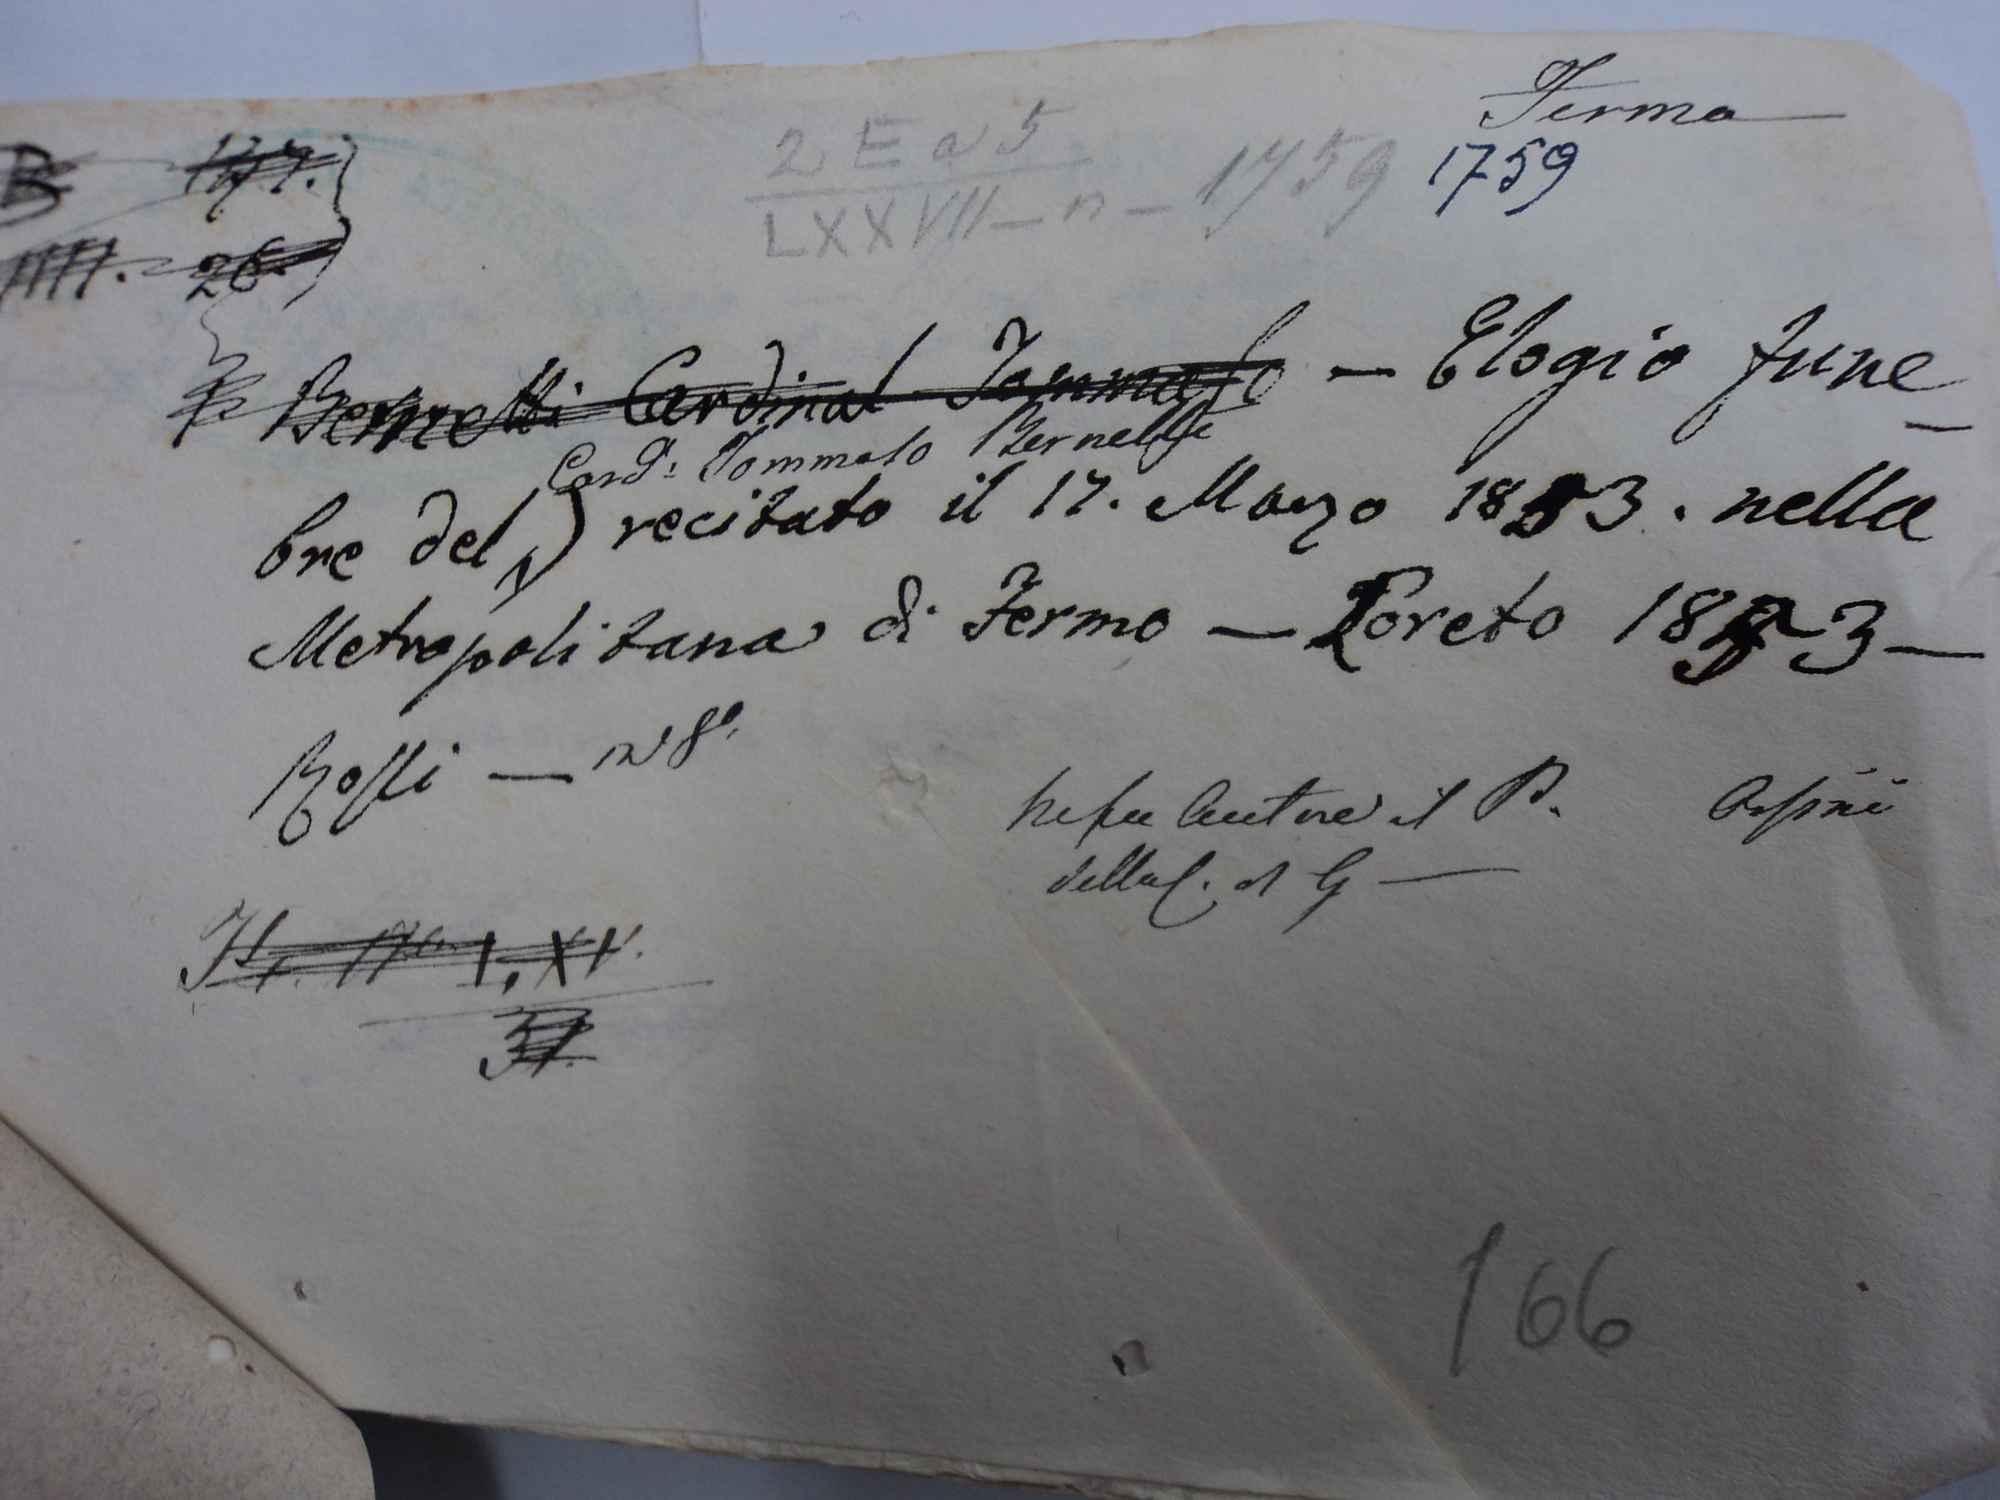 Fermo
2 E a 5
LXXVII - n - 1759
1759
B
26
Bernetti Cardinal Tommaso - Elogio fune-
Card. Tommaso Bernetti
bre del recitato il 17. Marzo 1853. nella
Metropolitana di Fermo - Loreto 1853 -
Rossi - in 8°.
autore il P.
della C. di G -
166